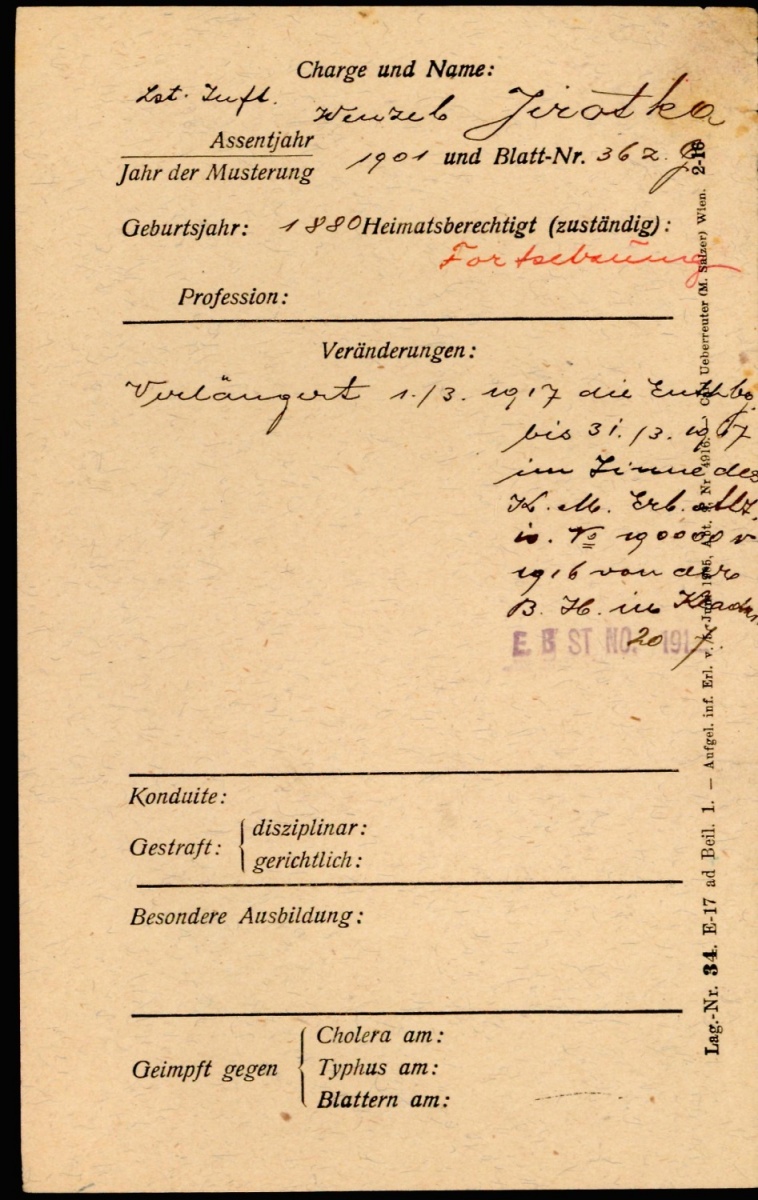 Charge und Name:
Lst. Inft. Wenzel Jirotka
Assentjahr
Jahr der Musterung 1901 und Blatt-Nr. 362.
Geburtsjahr: 1880 Heimatsberechtigt (zuständig):
Fortsetzung
Profession:
Veränderungen:
Verlängert 1./3. 1917 die Enthbg
bis 31./3. 1917
im Sinne des
K. M. Erl. Abt.
No 190000 v
1916 von der
B. H. in
E. B ST NO. 20 191
Konduite:
Gestraft: { disziplinar:
gerichtlich:
Besondere Ausbildung:
Geimpft gegen { Cholera am:
Typhus am:
Blattern am:
Lag.-Nr. 34. E-17 ad Beil. 1. — Aufgel. inf. Erl. v. Juni Abt. Nr. 4916. — Carl Ueberreuter (M. Salzer) Wien. 2-16